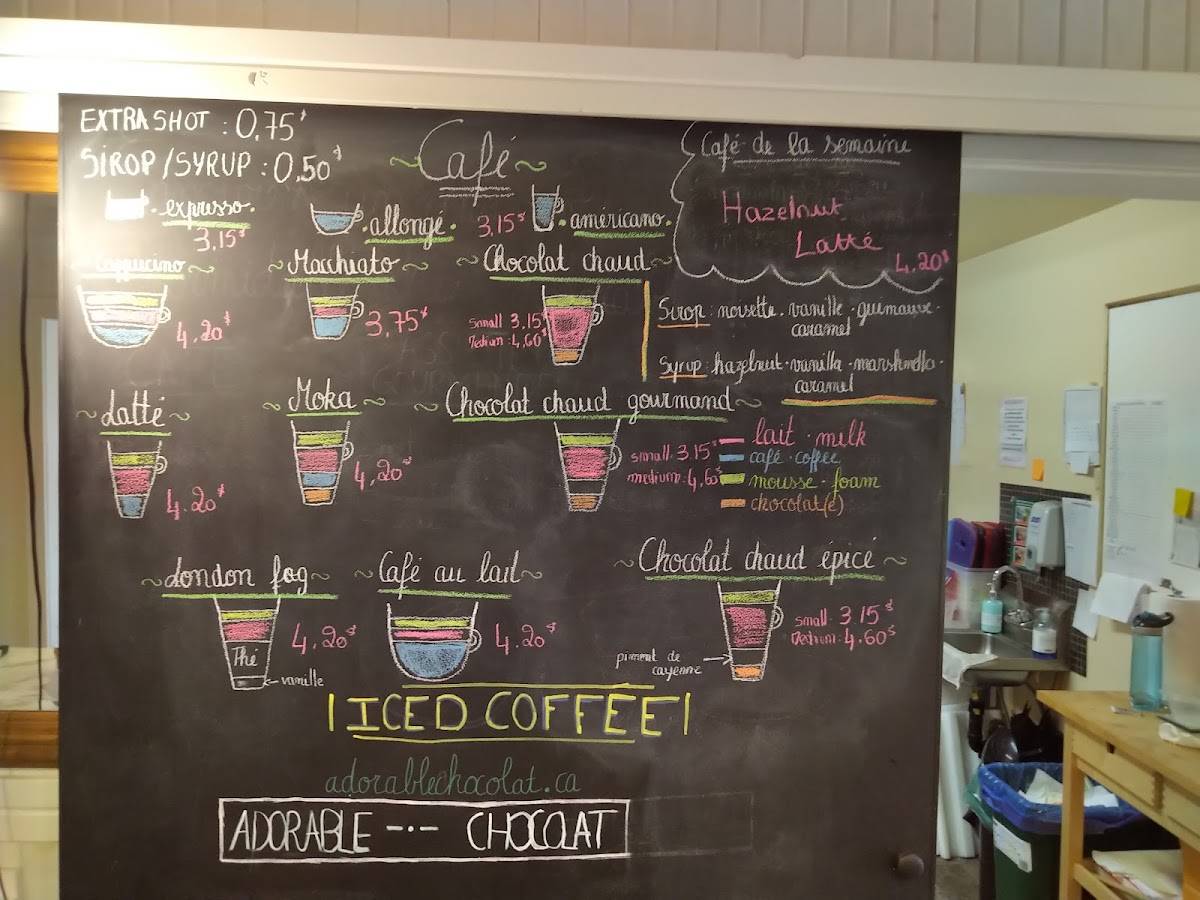 EXTRA SHOT : 0,75$
SIROP/SYRUP : 0,50$
~Café~
Café de la semaine
Hazelnut
Latté
4,20$
.expresso.
3,15$
.allongé.
3,15$
.américano.
Cappucino~
4,20$
~Macchiato~
3,75$
~Chocolat chaud~
small 3,15$
Medium : 4,60$
Sirop : noisette . vanille . guimauve .
caramel
Syrup : hazelnut . vanilla . marshmello .
caramel
~Latté~
4,20$
~Moka~
4,20$
~Chocolat chaud gourmand~
small 3.15$
medium : 4,60$
lait . milk
café . coffee
mousse . foam
chocolat(e)
~London fog~
4,20$
Thé
vanille
~Café au lait~
4,20$
~Chocolat chaud épicé~
small 3.15$
Medium : 4.60$
piment de
cayenne
ICED COFFEE
adorablechocolat.ca
ADORABLE -·- CHOCOLAT